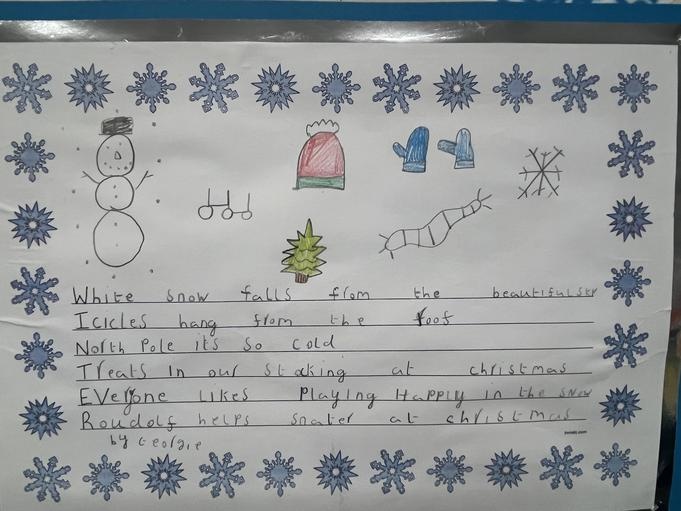 White snow falls from the beautiful sky
Icicles hang from the roof
North Pole its so cold
Treats in our stocking at christmas
EVeryone likes Playing Happly in the snow
Roudolf helps snater at christmas
by Georgie